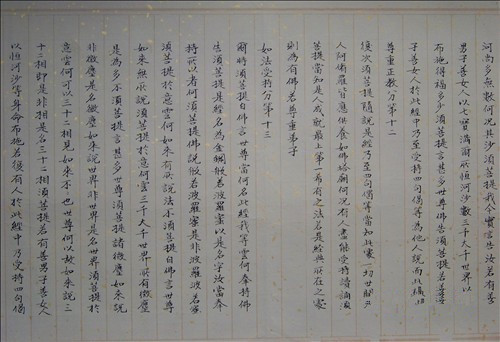 河尚多無數何況其沙須菩提我今實言告汝若有善
男子善女人以七寶滿爾所恒河沙數三千大千世界以
布施得福多不須菩提言甚多世尊佛告須菩提若善
子善女人於此經中乃至受持四句偈等為他人說而此福
尊重正教分第十二
復次須菩提隨說是經乃至四句偈等當知此處一切世間天
人阿修羅皆應供養如佛塔廟何況有人盡能受持讀誦須
菩提當知是人成就最上第一希有之法若是經典所在之處
則為有佛若尊重弟子
如法受持分第十三
爾時須菩提白佛言世尊當何名此經我等云何奉持佛
告須菩提是經名為金剛般若波羅蜜以是名字汝當奉
持所以者何須菩提佛說般若波羅蜜是非波羅
須菩提於意云何如來有所說法不須菩提白佛言世尊
如來無所說須菩提於意云何三千大千世界所有微塵
是為多不須菩提言甚多世尊須菩提諸微塵如來說
非微塵是名微塵如來說世界非世界是名世界須菩提於
意云何可以三十二相見如來不也世尊何以故如來說三
十二相即是非相是名三十二相須菩提若有善男子善女人
以恒河沙等身命布施若復有人於此經中乃至受持四句